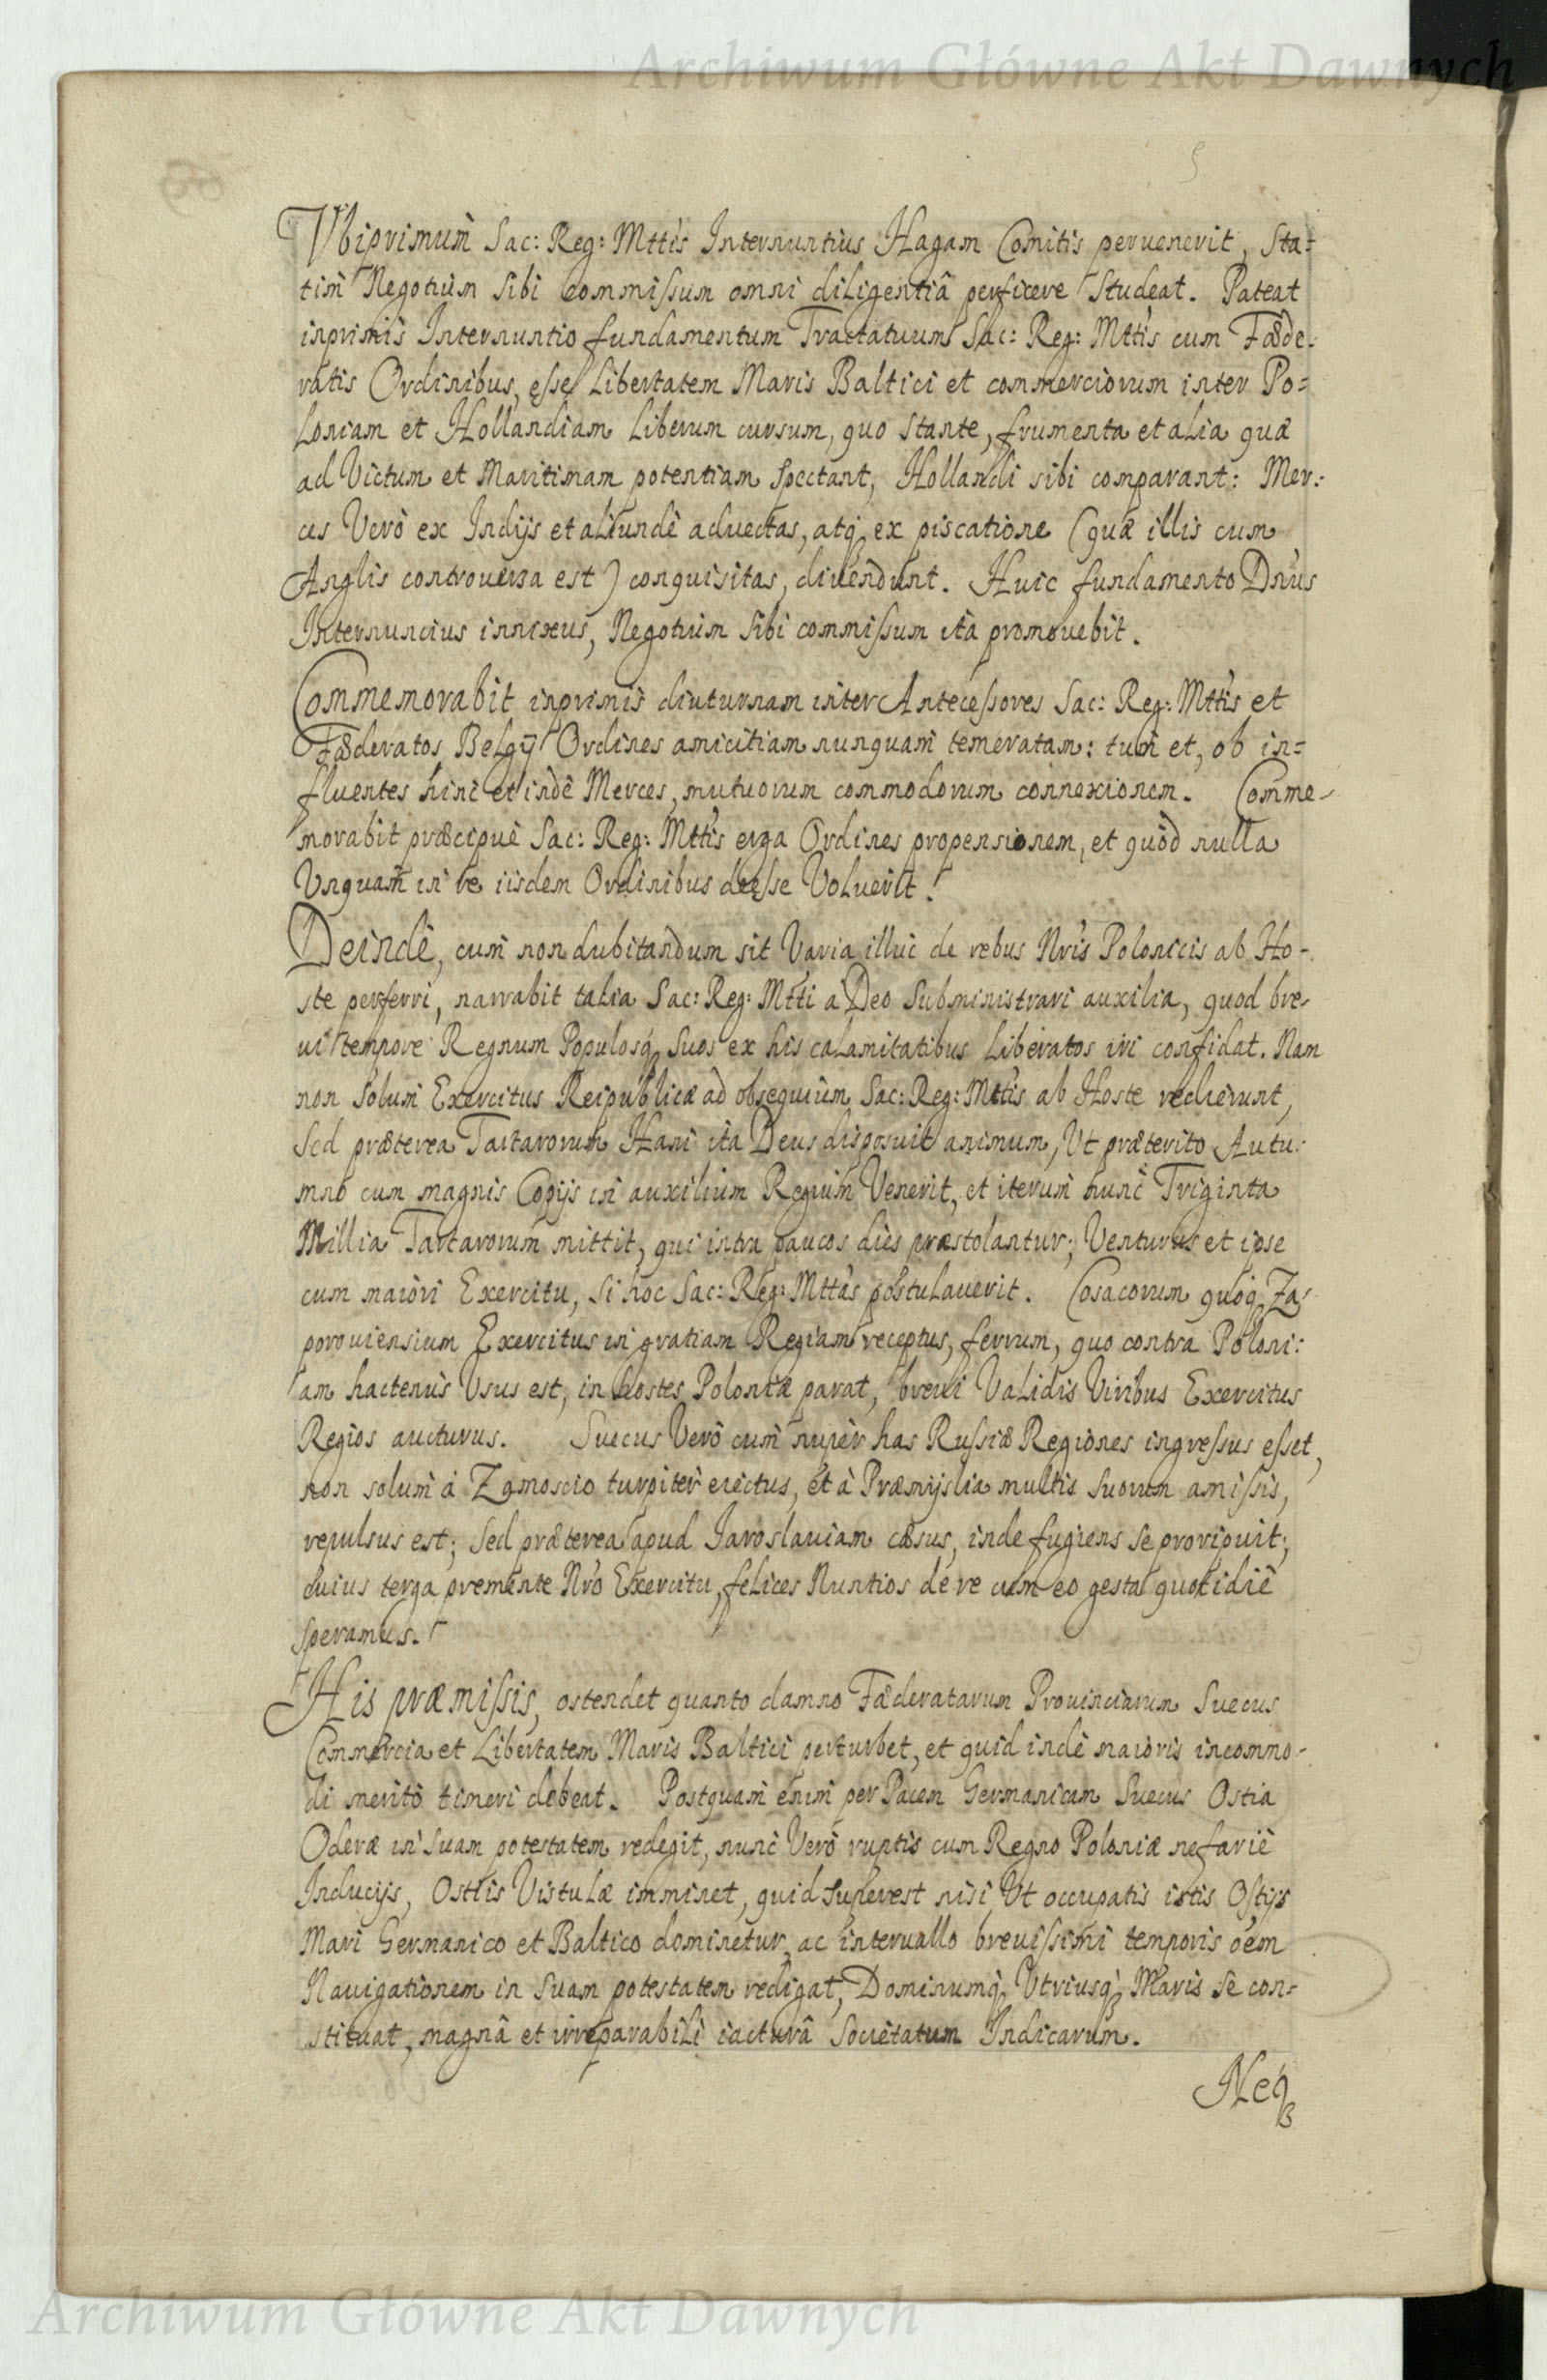 Archiwum Główne Akt Dawnych
5
Vbiprimum Sac: Reg: Mttis Internuntius Hagam Comitis peruenerit, sta=
tim Negotium sibi commissum omni diligentiâ perficere studeat. Pateat
inprimis Internuntio fundamentum Tractatuum Sac: Reg: Mttis cum Fæde-
ratis Ordinibus, esse Libertatem Maris Baltici et commerciorum inter Po=
loniam et Hollandiam liberum cursum, quo stante, frumenta et alia quæ
ad Victum et Maritimam potentiam spectant, Hollandi sibi comparant: Mer:
ces Verò ex Indijs et aliundè aduectas, atq ex piscatione (quæ illis cum
Anglis controuersa est) conquisitas, diuendunt. Huic fundamento Dnus
Internuncius innixus, Negotium sibi commissum ita promouebit.
Commemorabit inprimis diuturnam inter Antecessores Sac: Reg: Mttis et
Fæderatos Belgij Ordines amicitiam nunquam temeratam: tum et, ob in=
fluentes hinc et indè Merces, mutuorum commodorum connexionem. Comme-
morabit præcipuè Sac: Reg: Mttis erga Ordines propensionem, et quòd nulla
Vnquam in re iisdem Ordinibus deesse Voluerit.
Deindè, cum non dubitandum sit Varia illuc de rebus Nris Polonicis ab Ho-
ste perferri, narrabit talia Sac: Reg: Mtti a Deo subministrari auxilia, quod bre-
ui tempore Regnum Populosq suos ex his calamitatibus liberatos iri confidat. Nam
non solum Exercitus Reipublicæ ad obsequium Sac: Reg: Mttis ab Hoste redierunt,
sed præterea Tartarorum Hani ita Deus disposuit animum, Vt præterito Autu:
mno cum magnis Copijs in auxilium Regium Venerit, et iterum nunc Triginta
Millia Tartarorum mittit, qui intra paucos dies præstolantur; Venturus et ipse
cum maiori Exercitu, si hoc Sac: Reg: Mttas postulauerit. Cosacorum quoq Za-
porouiensium Exercitus in gratiam Regiam receptus, ferrum, quo contra Poloni:
am hactenus Vsus est, in hostes Poloniæ parat, breui Validis Viribus Exercitus
Regios aucturus. Suecus Verò cum nupèr has Russiæ Regiones ingressus esset,
non solum à Zamoscio turpiter eiectus, et à Præmyslia multis suorum amissis,
repulsus est; sed præterea apud Iaroslauiam cæsus, inde fugiens se proripuit;
cuius terga premente Nro Exercitu, felices Nuntios de re cum eo gesta quotidiè
speramus.
His præmissis, ostendet quanto damno Fæderatarum Prouinciarum Suecus
Commercia et Libertatem Maris Baltici perturbet, et quid indè maioris incommo-
di meritò timeri debeat. Postquam enim per Pacem Germanicam Suecus Ostia
Oderæ in suam potestatem redegit, nunc Verò ruptis cum Regno Poloniæ nefariè
Inducijs, Ostiis Vistulæ imminet, quid superest nisi Vt occupatis istis Ostijs
Mari Germanico et Baltico dominetur, ac interuallo breuissimi temporis oem
Nauigationem in suam potestatem redigat, Dominumq Vtriusq Maris se con-
stituat, magnâ et irreparabili iacturâ Societatum Indicarum.
Neq
Archiwum Główne Akt Dawnych